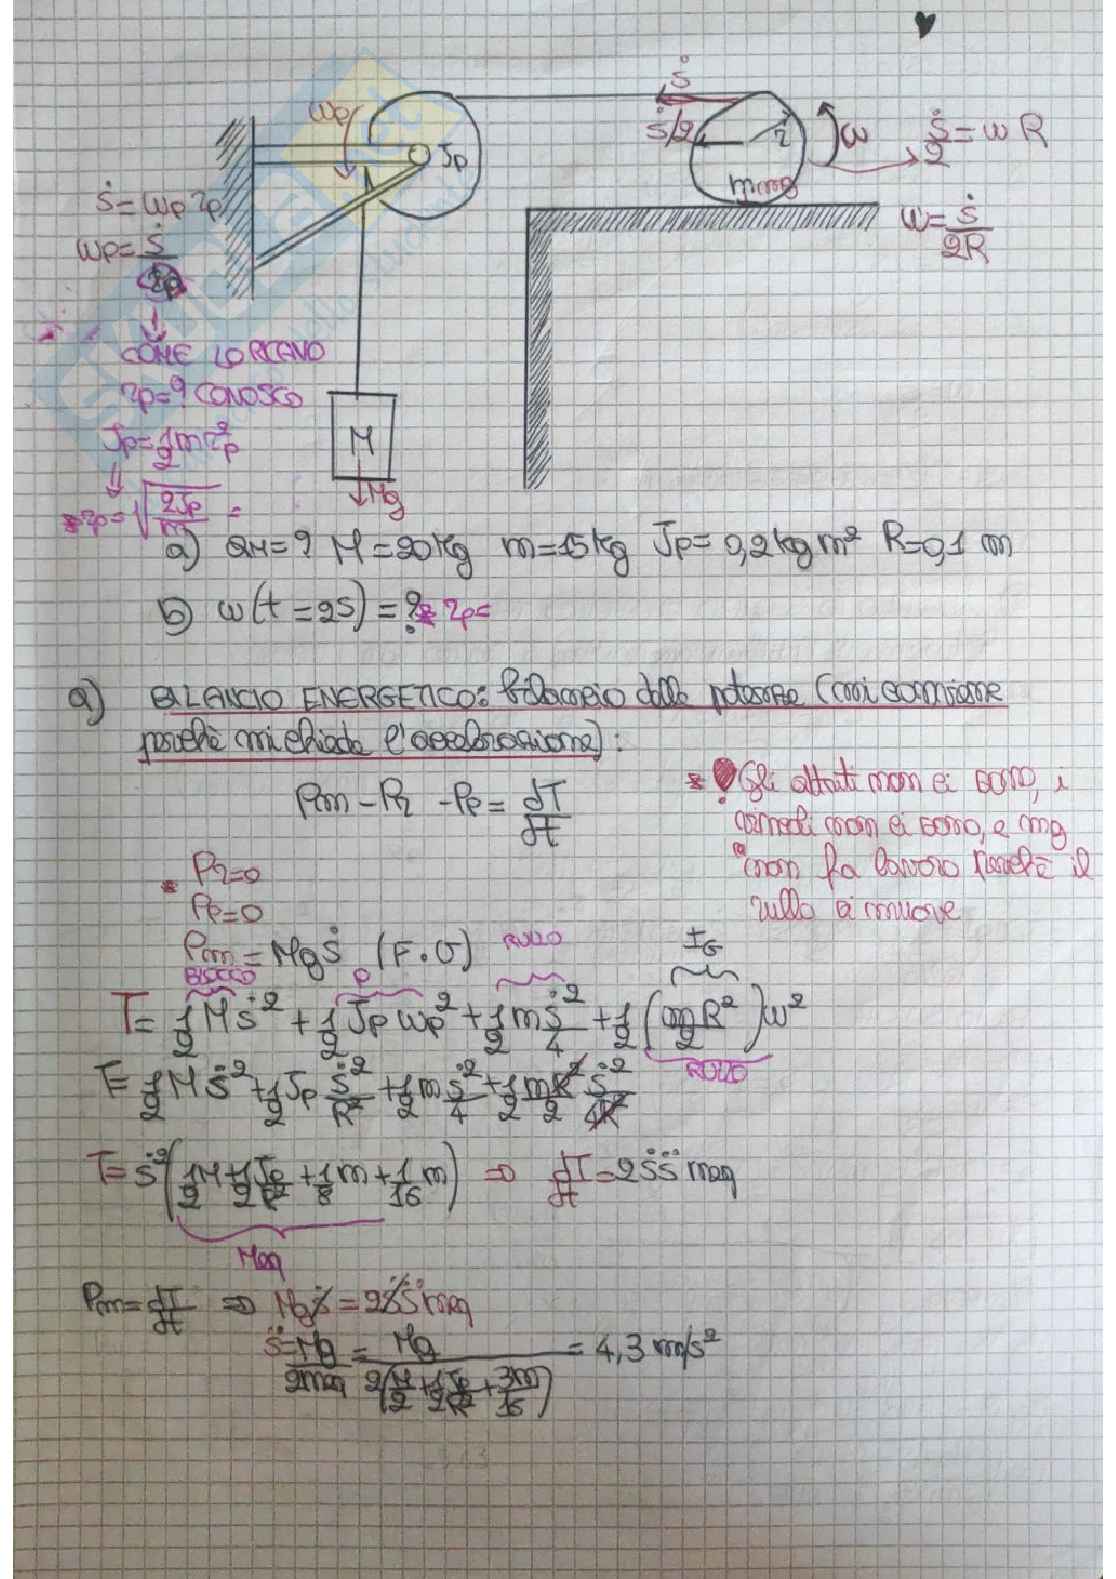 ṡ
ωp
ṡ/2
r
ω
ṡ/2 = ωR
Jp
mg
ṡ = ωp rp
ωp = ṡ/rp
ω = ṡ/2R
COME LO RICAVO
rp=? CONOSCO
Jp = 1/2 m rp²
M
rp = √(2Jp/m) =
Mg
a) aM = ? M = 20 kg m = 15 kg Jp = 0,2 kg m² R = 0,1 m
b) ω(t = 2s) = ? rp=
a) BILANCIO ENERGETICO: bilancio delle potenze (mi conviene
perché mi chiede l'accelerazione):
Pm - Pr - Pp = dT/dt
Gli attriti non ci sono, i
ci sono, e mg
non fa lavoro perché il
rullo si muove
Pr=0
Pp=0
Pm = Mgṡ (F·v)
RULLO
IG
BLOCCO
P
T = 1/2 Mṡ² + 1/2 Jp ωp² + 1/2 m ṡ²/4 + 1/2 (mR²/2) ω²
RULLO
T = 1/2 Mṡ² + 1/2 Jp ṡ²/R² + 1/2 m ṡ²/4 + 1/2 mR²/2 ṡ²/4R²
T = ṡ² (1/2 M + 1/2 Jp/R² + 1/8 m + 1/16 m) ⇒ dT/dt = 2ṡs̈ meq
Meq
Pm = dT/dt ⇒ Mgṡ = 2ṡs̈ meq
s̈ = Mg/2meq = Mg/2(M/2 + 1/2 Jp/R² + 3m/16) = 4,3 m/s²